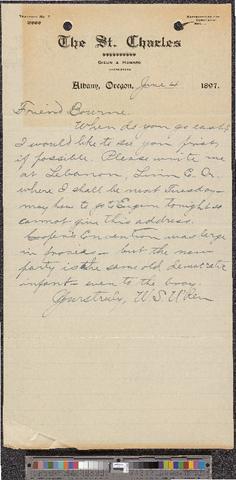 The St. Charles
Albany, Oregon, June 4 1897.
Friend Bourne.
When do you go east?
I would like to see you first,
if possible. Please write me
at Lebanon, Linn Co. Or.
where I shall be next Tuesday
may have to go to Eugene tonight so
cannot give this address.
Convention was large
in — but the new
party is the same old democratic
infant — even to the
Yours truly, W S U'Ren